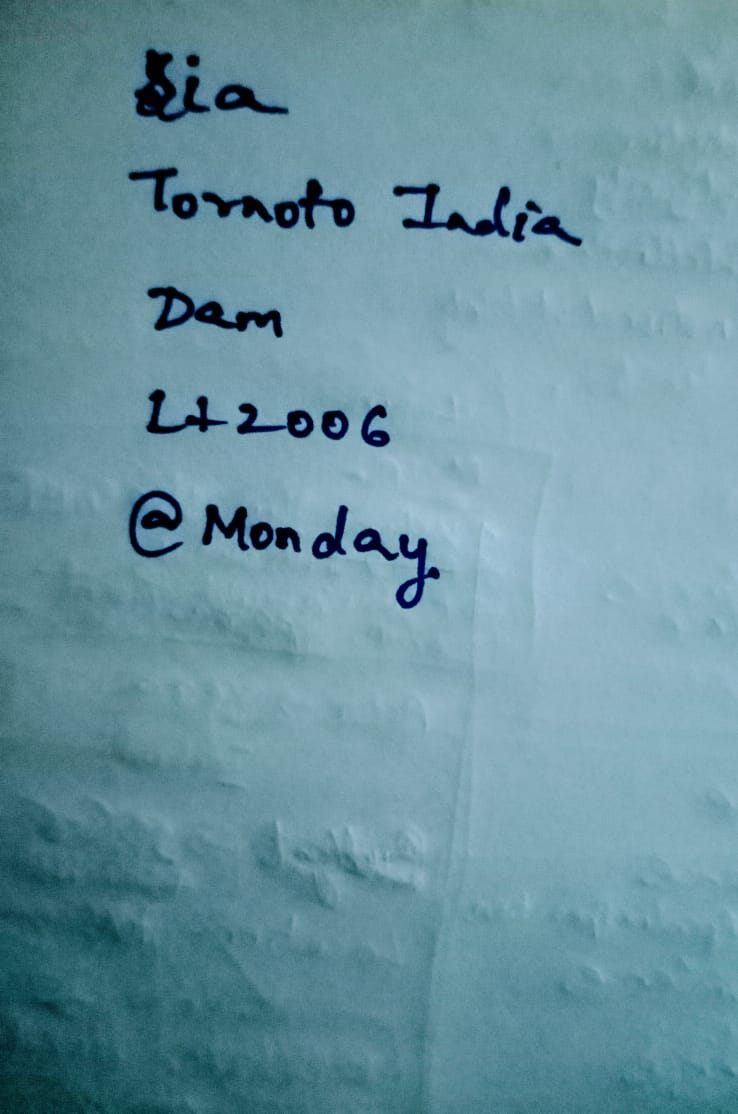 Sia
Tornoto India
Dam
L+2006
@Monday.